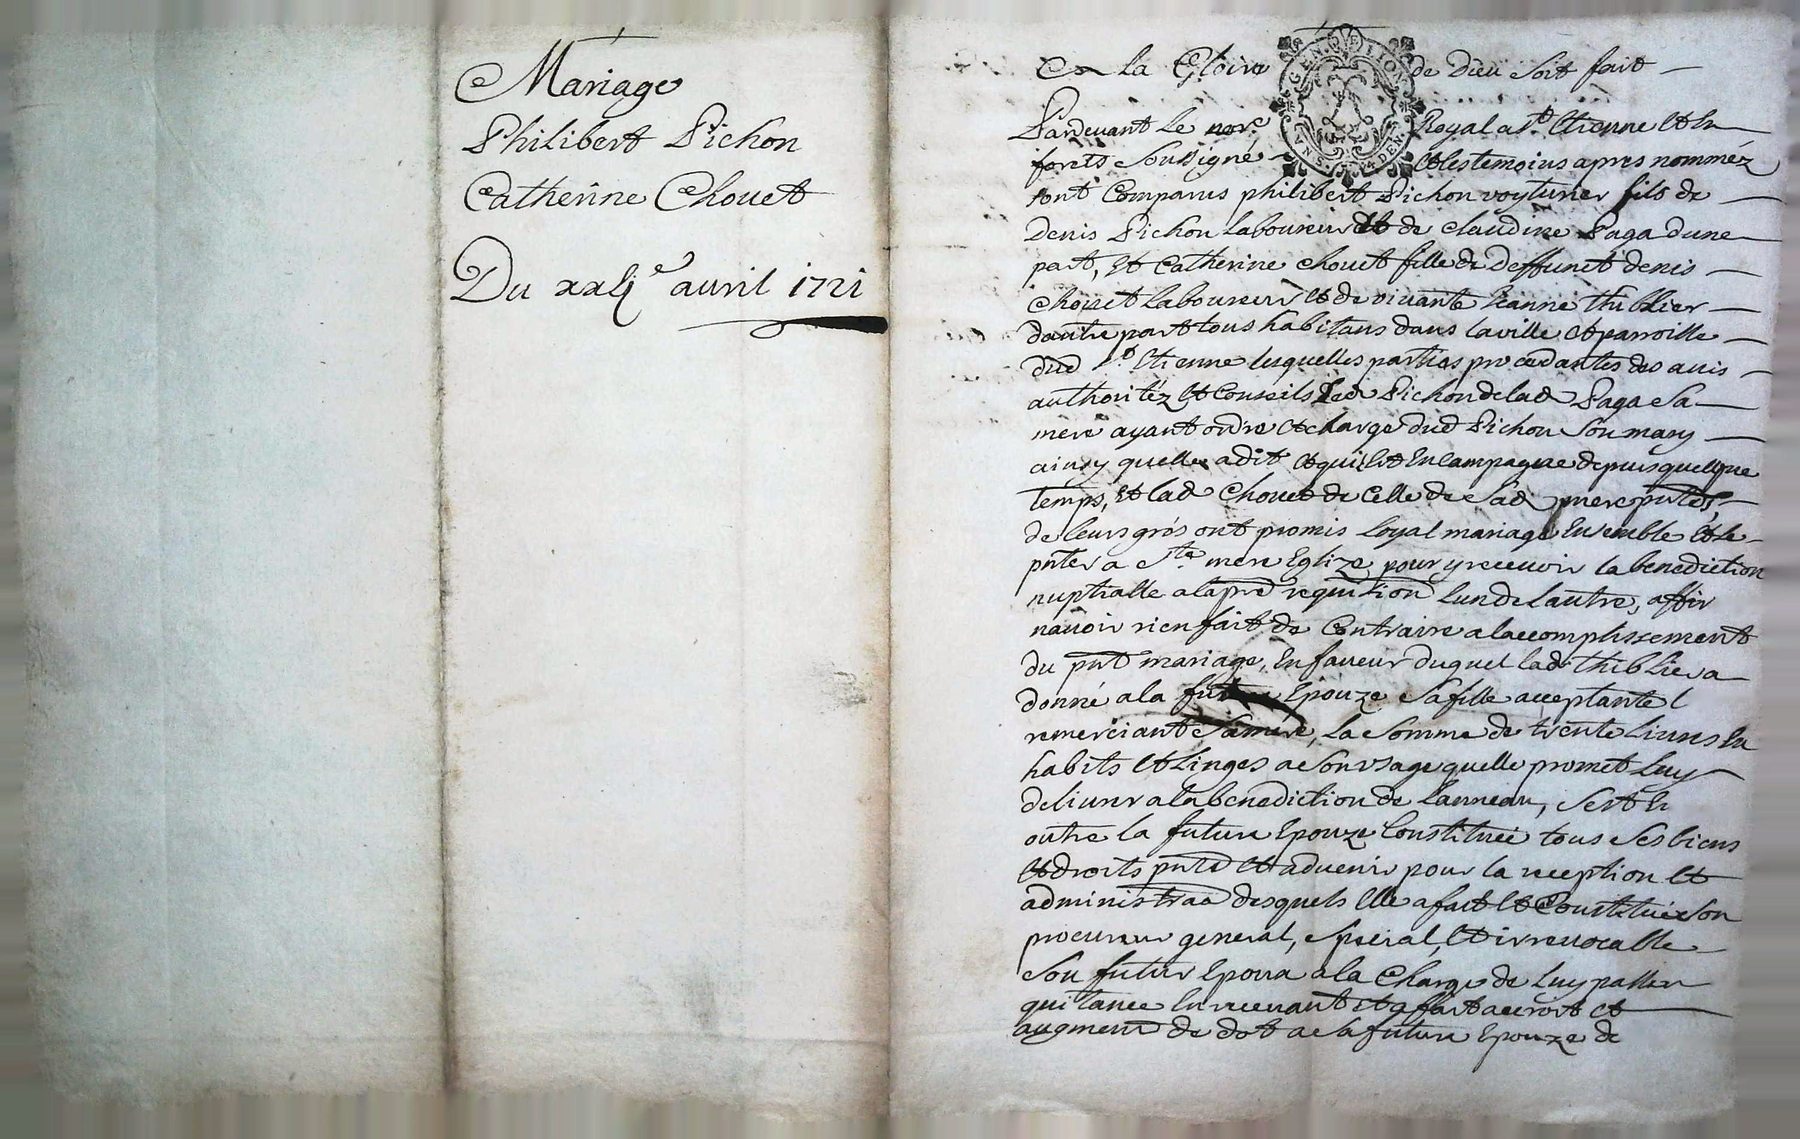 Mariage
Philibert Pichon
Catherine Chouet
Du xxiie avril 1721
A la Gloire de Dieu soit fait
Pardevant Le nore Royal a St. Etienne Et en
forets Soussigné Et les temoins apres nomméz
sont Comparus philibert Pichon voyturier fils de
Denis Pichon Laboureur Et de Claudine Paga dune
part, Et Catherine Chouet fille de Deffunct denis
Chouet Laboureur Et de vivante Jeanne Thiblier
dautre part tous habitans dans la ville Et parroisse
dud St. Etienne lesquelles parties procedantes des avis
authoritéz Et Conseils Led Pichon de lad Paga Sa
mere ayant ordre Et charge dud Pichon Son mary
ainsy quelle a dit Et qui Est En Campagne depuis quelque
temps, Et lad Chouet de Celle de Sad mere pntes,
de leurs grés ont promis Loyal mariage Ensemble Et Se
pnter a Ste mere Eglize pour y recevoir la benediction
nuptialle a la pre requition lun de lautre, affir
navoir rien fait de Contraire a laccomplissement
du pnt mariage, En faveur duquel lad Thiblier a
donné a la future Epouze Sa fille acceptante
remerciant Sa mere, La Somme de trente Livres En
habits Et Linges a Son usage quelle promet Luy
delivrer a la benediction de Lanneau, Sest En
outre la future Epouze Constituée tous Ses biens
Et droits pnts Et advenir pour la reception Et
administraon desquels Elle a fait Et Constitué Son
procureur general, Special, Et irrevocable
Son futur Epoux a la Charge de Luy passer
quitance En recevant Et a fait accroit Et
augment de dot a la future Epouze de